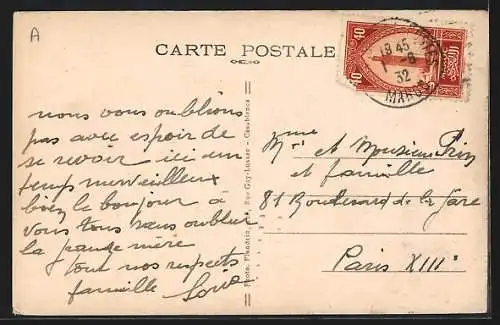 A
CARTE POSTALE
40 40
18 45
1 -8
32
MAROC
nous vous oublions
pas avec espoir de
se revoir ici un
temps merveilleux
bien le bonjour à
vous tous sans oublier
la grande mère
tout nos respects
famille
Rue Gay-Lussac - Casablanca
Mme
Mr et Monsieur
et famille
81 Boulevard de la Gare
Paris XIII